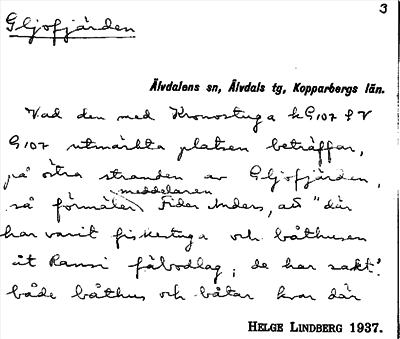 3
Gljofjärden
Älvdalens sn, Älvdals tg, Kopparbergs län.
Vad den med Kronostuga k G107 S V
G107 utmärkta platsen beträffar,
på östra stranden av Gljofjärden,
meddelaren
så förmäler Fider Anders, att "där
har varit fiskestuga och båthusen
åt Ransi fäbodlag; de har sakt!
både båthus och båtar kvar där
HELGE LINDBERG 1937.